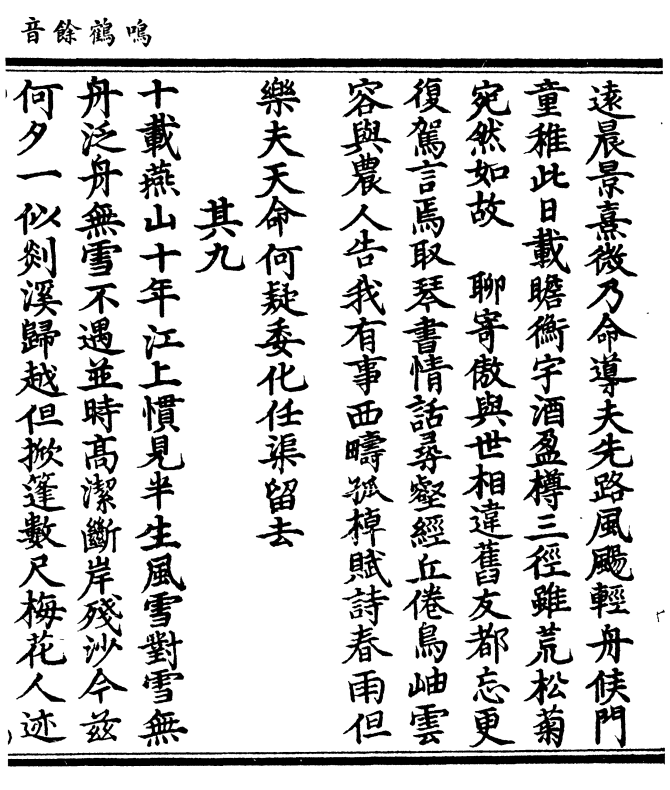 鳴鶴餘音
遠晨景熹微乃命導夫先路風颺輕舟候門
童稚此日載瞻衡宇酒盈樽三徑雖荒松菊
宛然如故　聊寄傲與世相違舊友都忘更
復駕言焉取琴書情話尋壑經丘倦鳥岫雲
容與農人告我有事西疇孤棹賦詩春雨但
樂夫天命何疑委化任渠留去
其九
十載燕山十年江上慣見半生風雪對雪無
舟泛舟無雪不遇並時高潔斷岸殘沙今兹
何夕一似剡溪歸越但掀篷數尺梅花人迹